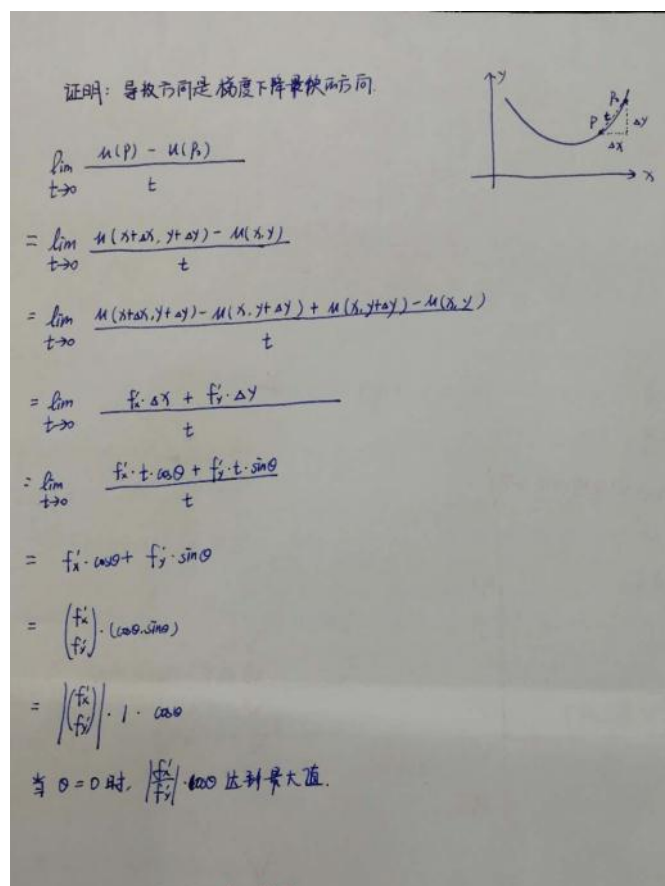 证明：导数方向是梯度下降最快的方向.
y
P₀
P
t
Δy
Δx
x
lim t→0 (u(P) - u(P₀)) / t
= lim t→0 (u(x+Δx, y+Δy) - u(x,y)) / t
= lim t→0 (u(x+Δx, y+Δy) - u(x, y+Δy) + u(x, y+Δy) - u(x,y)) / t
= lim t→0 (f'x · Δx + f'y · Δy) / t
= lim t→0 (f'x · t · cosθ + f'y · t · sinθ) / t
= f'x · cosθ + f'y · sinθ
= (f'x f'y) · (cosθ, sinθ)
= |(f'x f'y)| · 1 · cosθ
当 θ = 0 时, |f'x f'y| · cosθ 达到最大值.